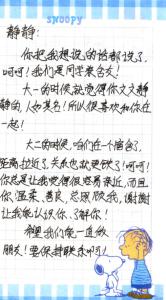 SNOOPY
静静:
你把我想说的话都说了,
呵呵!我们是同学兼舍友!
大一的时候就觉得你文文静
静的,人如其名!所以很喜欢和你在
一起!
大二的时候,咱们在一个宿舍了,
距离拉近了,关系也就更铁了!呵呵!
你总是让我觉得很容易亲近,而且
你温柔、善良、总是欣乐,谢谢
让我能认识你、了解你!
希望我们能一直做
朋友!要保持联系哟!